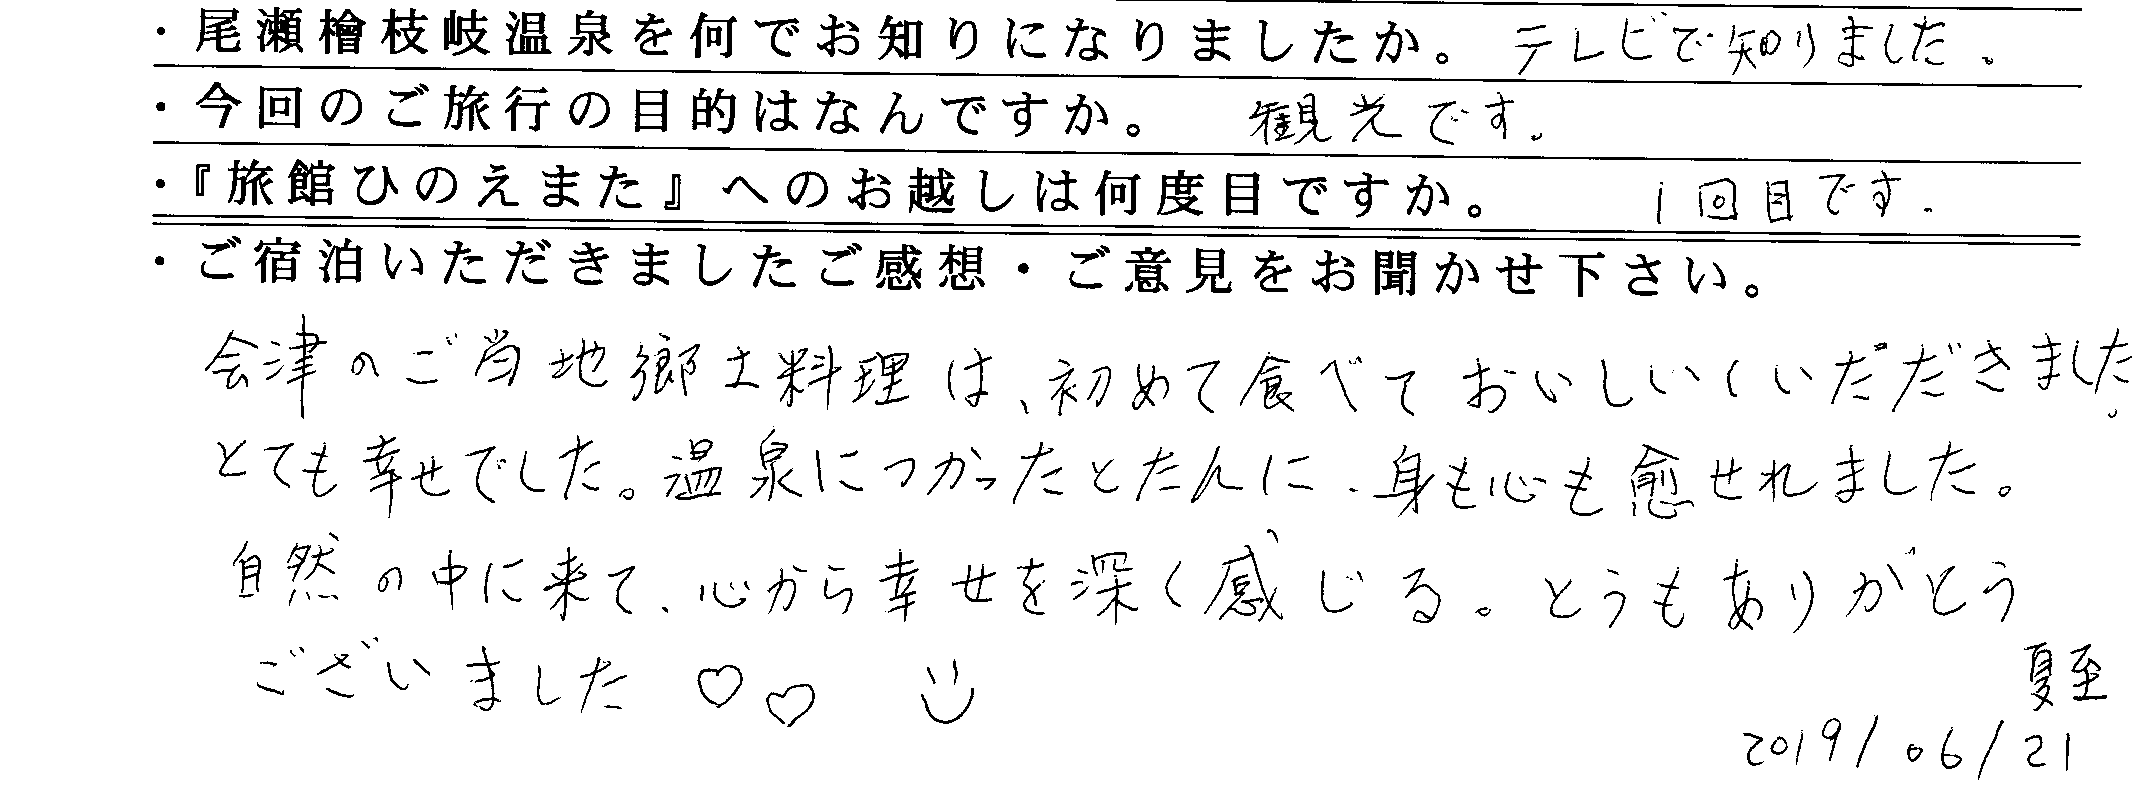 ・尾瀬檜枝岐温泉を何でお知りになりましたか。 テレビで知りました。
・今回のご旅行の目的はなんですか。 観光です.
・『旅館ひのえまた』へのお越しは何度目ですか。 1回目です.
・ご宿泊いただきましたご感想・ご意見をお聞かせ下さい。
会津のご当地郷土料理は、初めて食べておいしいくいただきました。
とても幸せでした。温泉につかったとたんに、身も心も愈せれました。
自然の中に来て、心から幸せを深く感じる。とうもありがとう
ございました ♡♡
夏至
2019/06/21